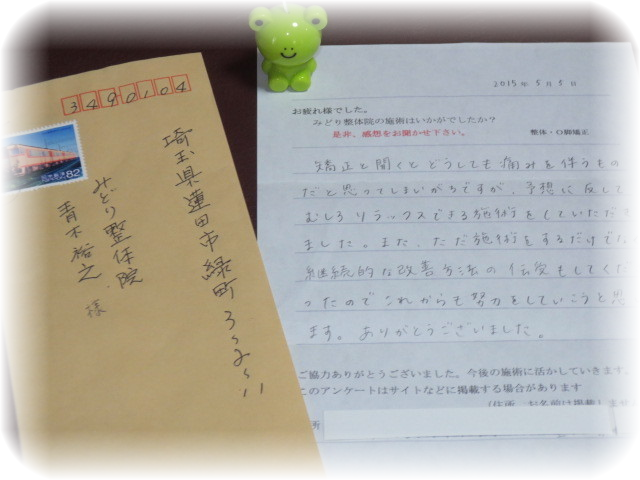 3490104
埼玉県蓮田市緑町3-2-11
みどり整体院
青木裕之 様
82
2015年5月5日
お疲れ様でした。
みどり整体院の施術はいかがでしたか?
是非、感想をお聞かせ下さい。
整体・O脚矯正
矯正と聞くとどうしても痛みを伴うもの
だと思ってしまいがちですが、予想に反して
むしろリラックスできる施術をしていただき
ました。また、ただ施術をするだけでな
継続的な改善方法の伝受もしてくだ
ったのでこれからも努力をしていこうと思
ます。ありがとうございました。
ご協力ありがとうございました。今後の施術に活かしていきます。
このアンケートはサイトなどに掲載する場合があります
(住所、お名前は掲載しませ
所